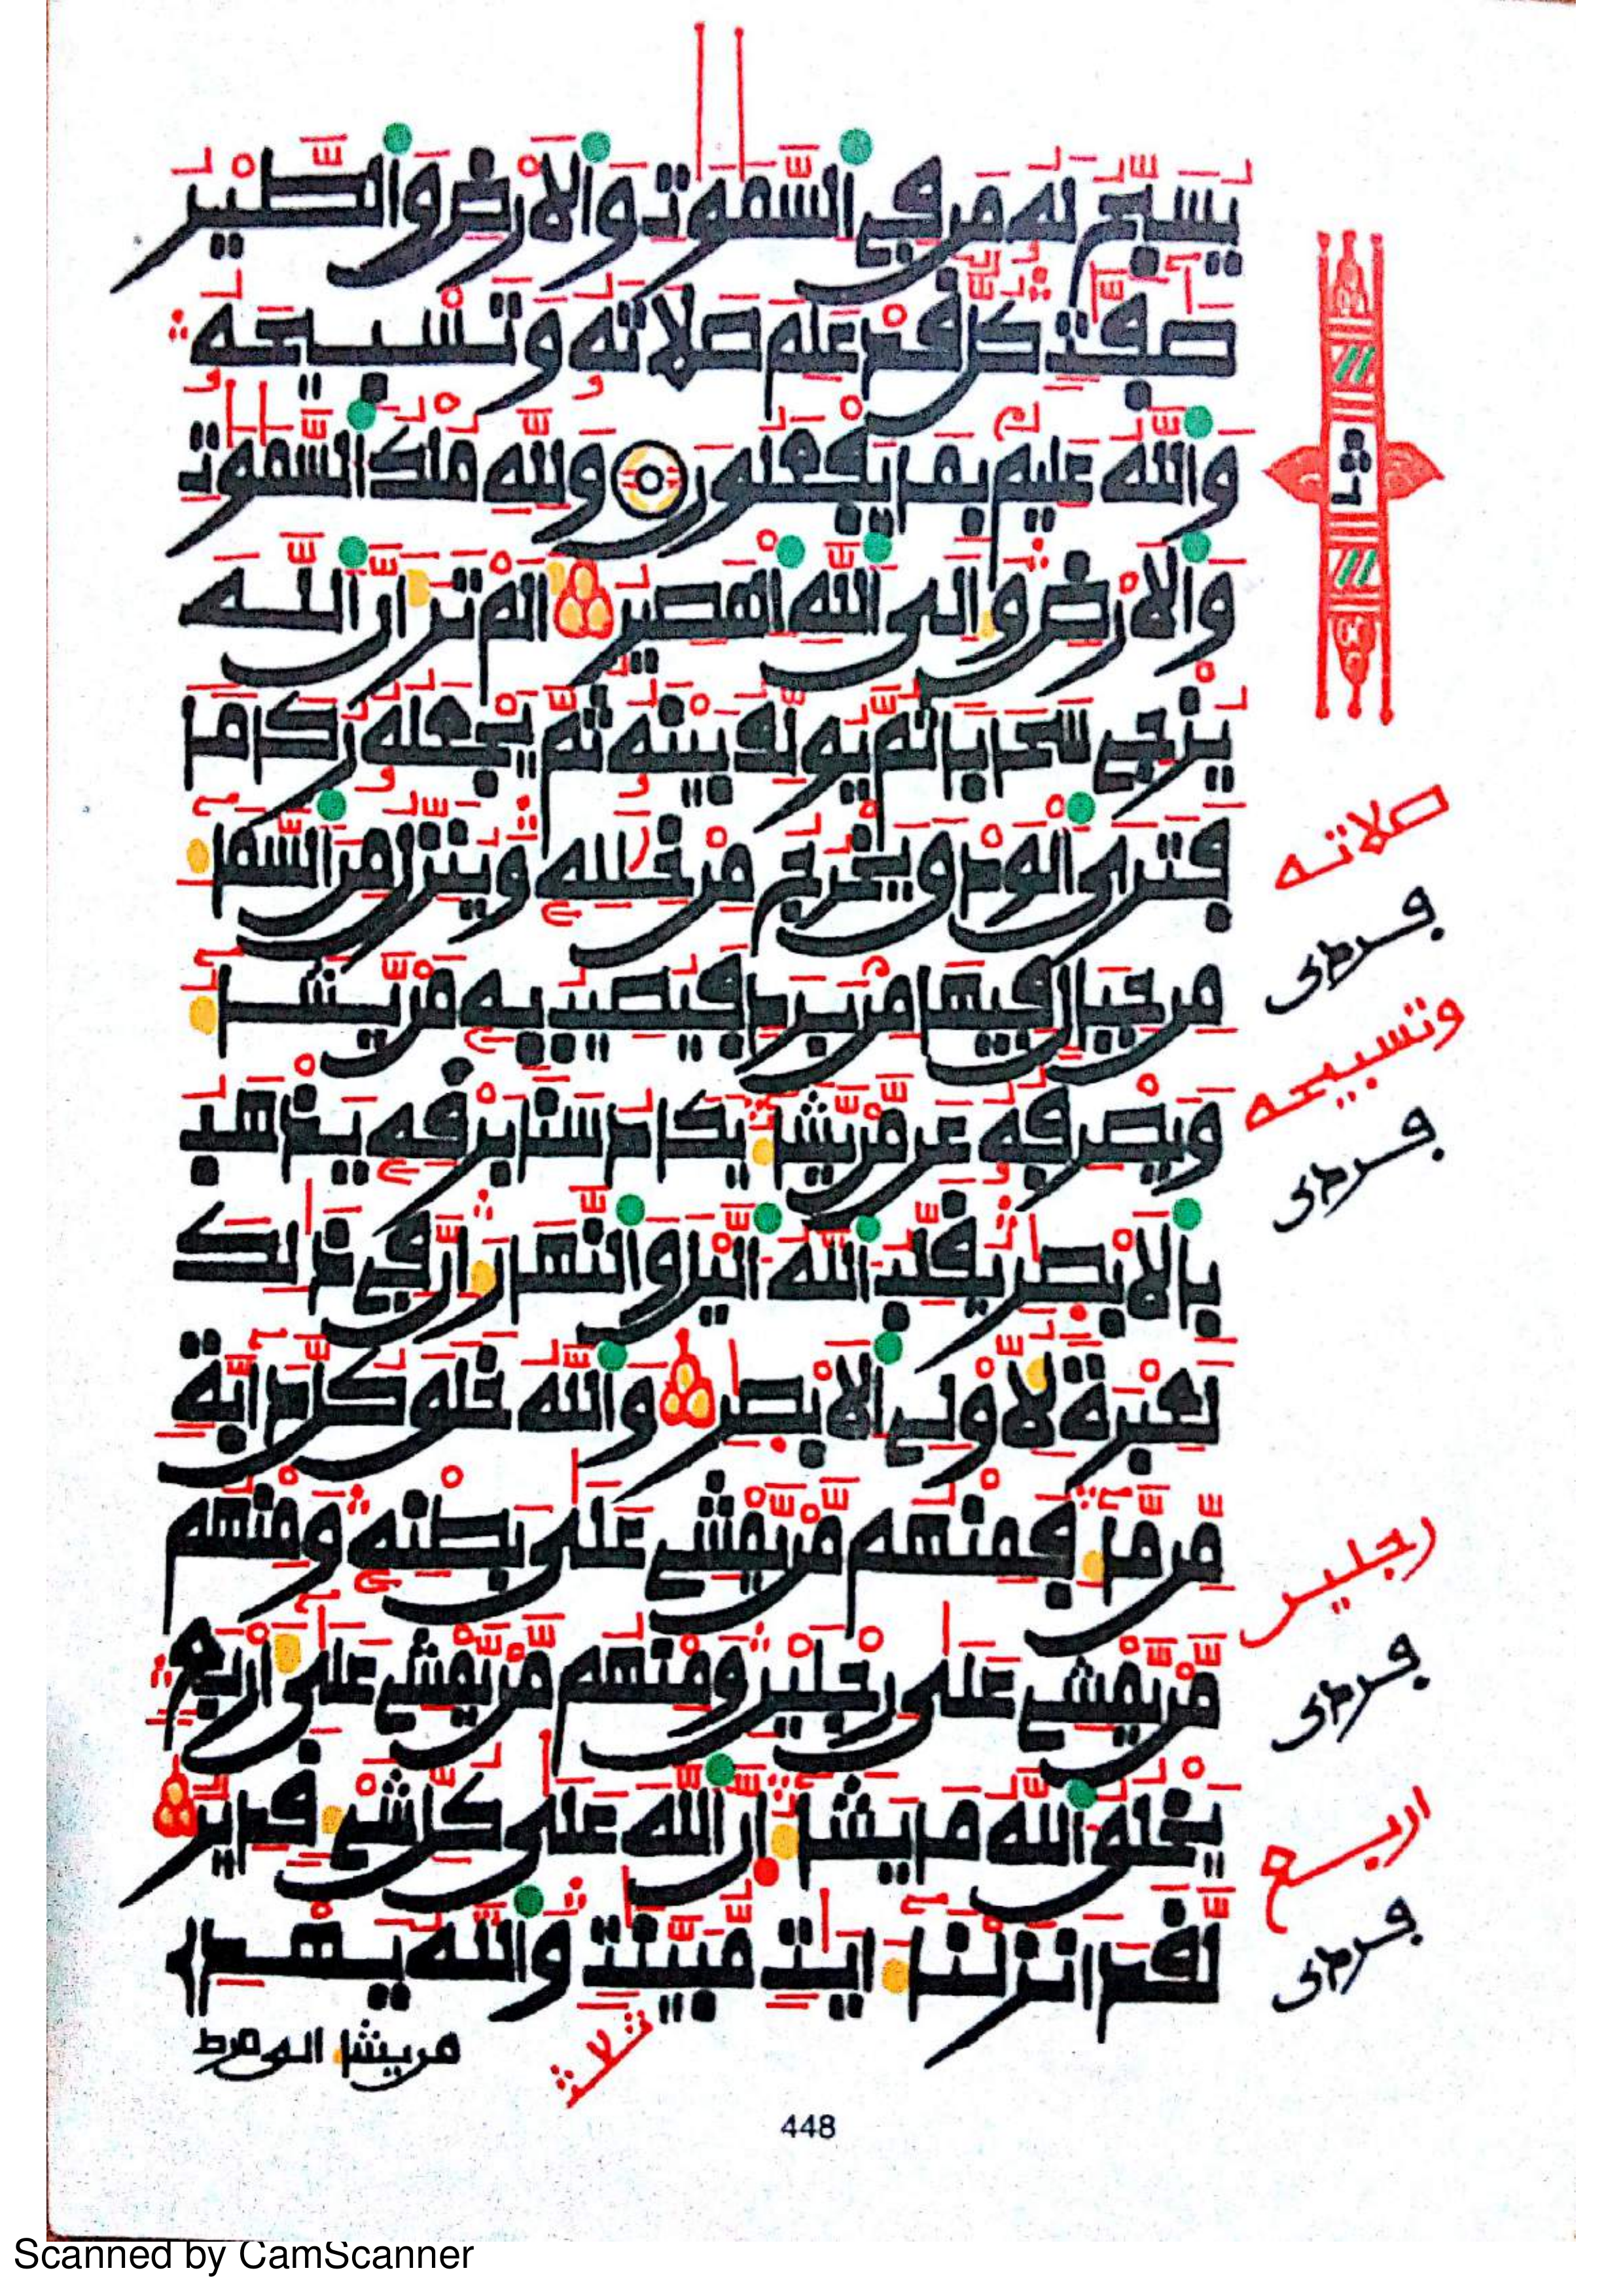 يسبح له من في السموت والارض والطير
صفت كل قد علم صلاته وتسبيحه
والله عليم بما يفعلون ولله ملك السموت
والارض والى الله المصير الم تر ان الله
يزجى سحابا ثم يولف بينه ثم يجعله ركاما
فترى الودق يخرج من خلله وينزل من السما
من جبال فيها من برد فيصيب به من يشا
ويصرفه عن من يشا يكاد سنا برقه يذهب
بالابصر يقلب الله اليل والنهار ان في ذلك
لعبرة لاولى الابصر والله خلق كل دابة
من ما فمنهم من يمشي على بطنه ومنهم
من يمشي على رجلين ومنهم من يمشي على اربع
يخلق الله ما يشا ان الله على كل شي قدير
لقد انزلنا ايت مبينت والله يهدي
من يشا الى صرط
ثلاث
صلاته
وتسبيحه
رجلين
اربع
448
Scanned by CamScanner